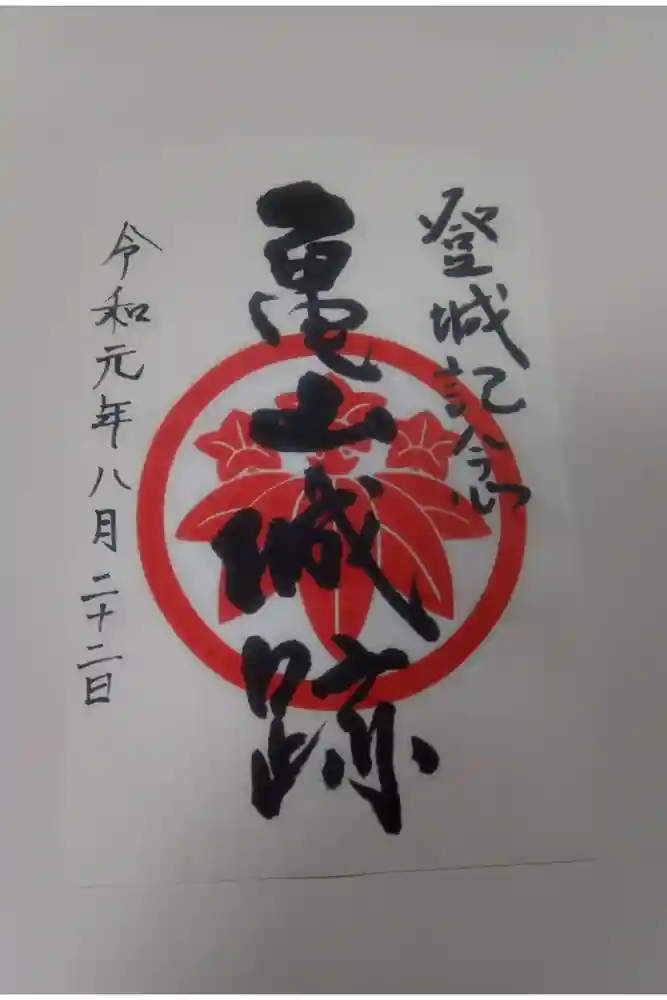 登城記念
亀山城跡
令和元年八月二十二日